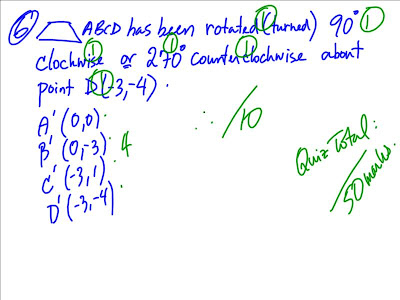 ⑥ ABCD has been rotated (turned) 90° ①
clockwise or 270° counterclockwise about
point D(-3,-4).
A' (0,0)
B' (0,-3)
C' (-3,1)
D' (-3,-4)
4
∴ /10
Quiz Total:
/50 marks.